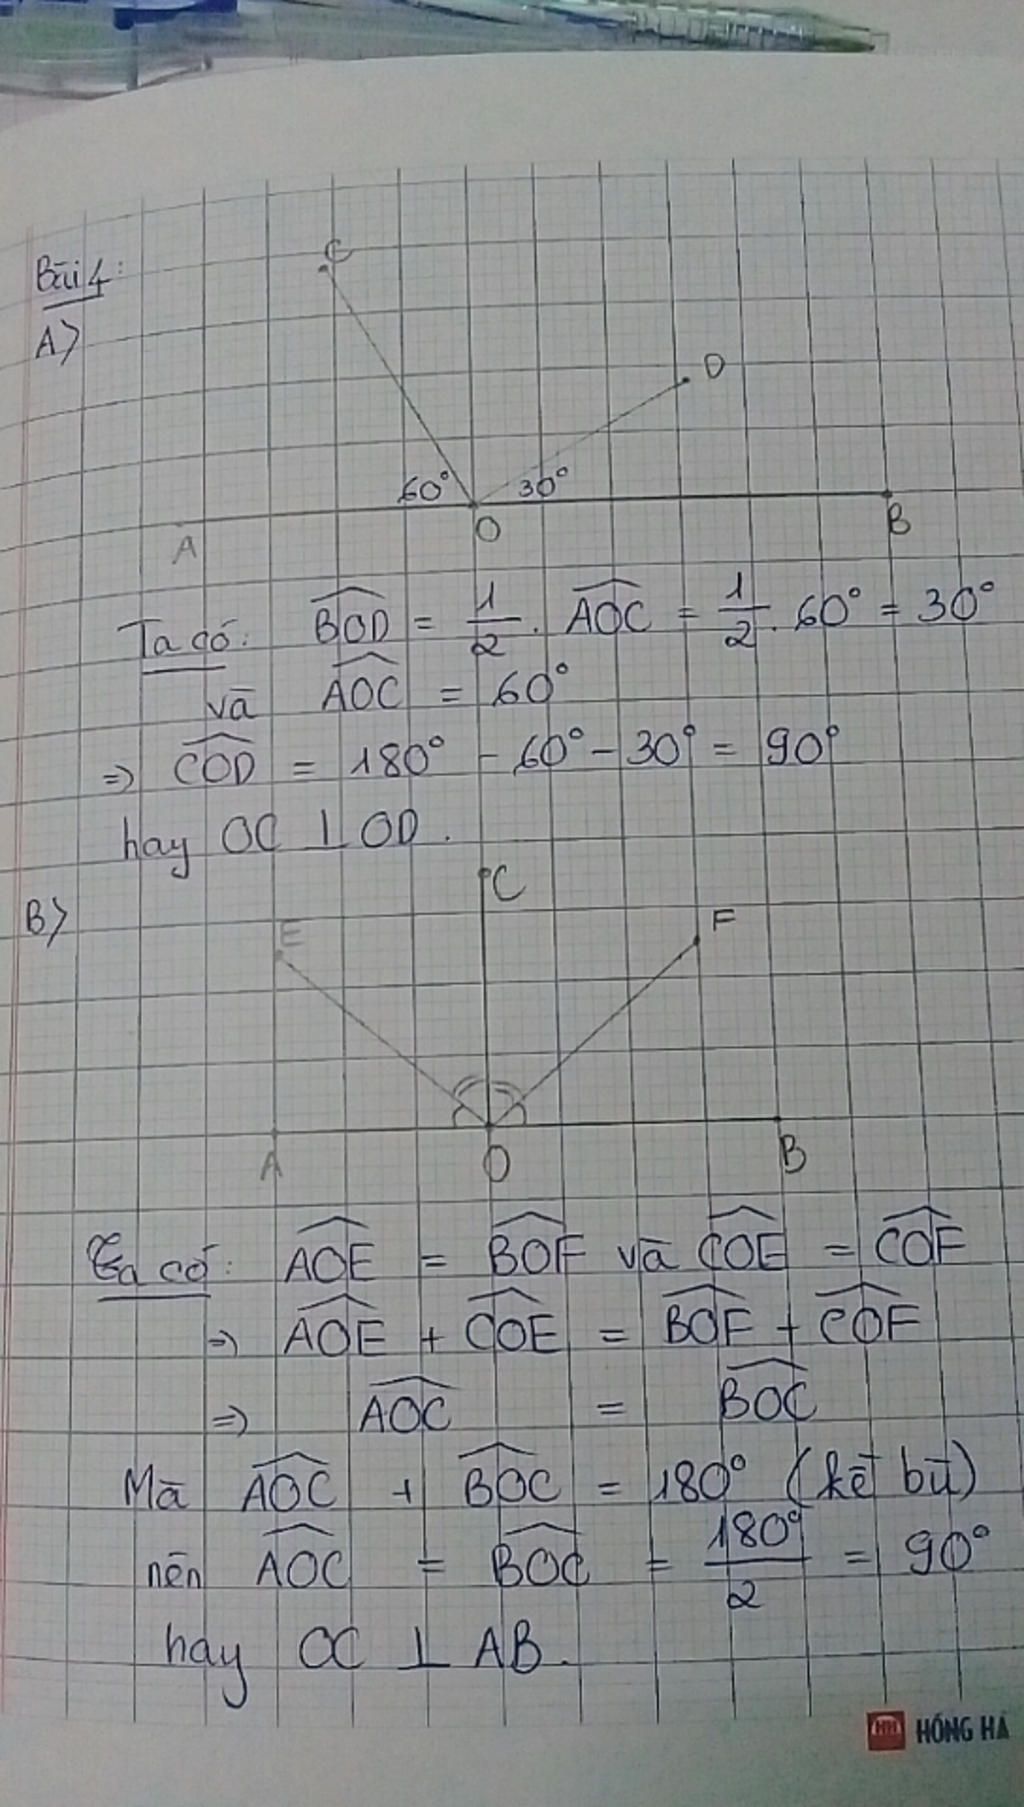 Bài 4:
A>
C
D
60° 30°
A O B
Ta có: BOD = 1/2 . AOC = 1/2 . 60° = 30°
và AOC = 60°
=> COD = 180° - 60° - 30° = 90°
hay OC ⊥ OD.
B>
C
E F
A O B
Ta có: AOE = BOF và COE = COF
=> AOE + COE = BOF + COF
=> AOC = BOC
Mà AOC + BOC = 180° (kề bù)
nên AOC = BOC = 180°/2 = 90°
hay OC ⊥ AB.
HH HỒNG HÀ